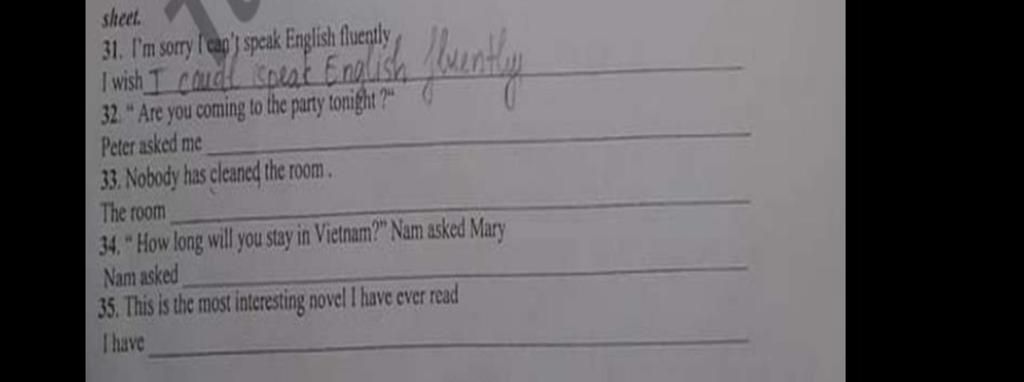 sheet.
31. I'm sorry I can't speak English fluently
I wish I coudl speak English fluently
32. " Are you coming to the party tonight ?"
Peter asked me
33. Nobody has cleaned the room .
The room
34. " How long will you stay in Vietnam?" Nam asked Mary
Nam asked
35. This is the most interesting novel I have ever read
I have